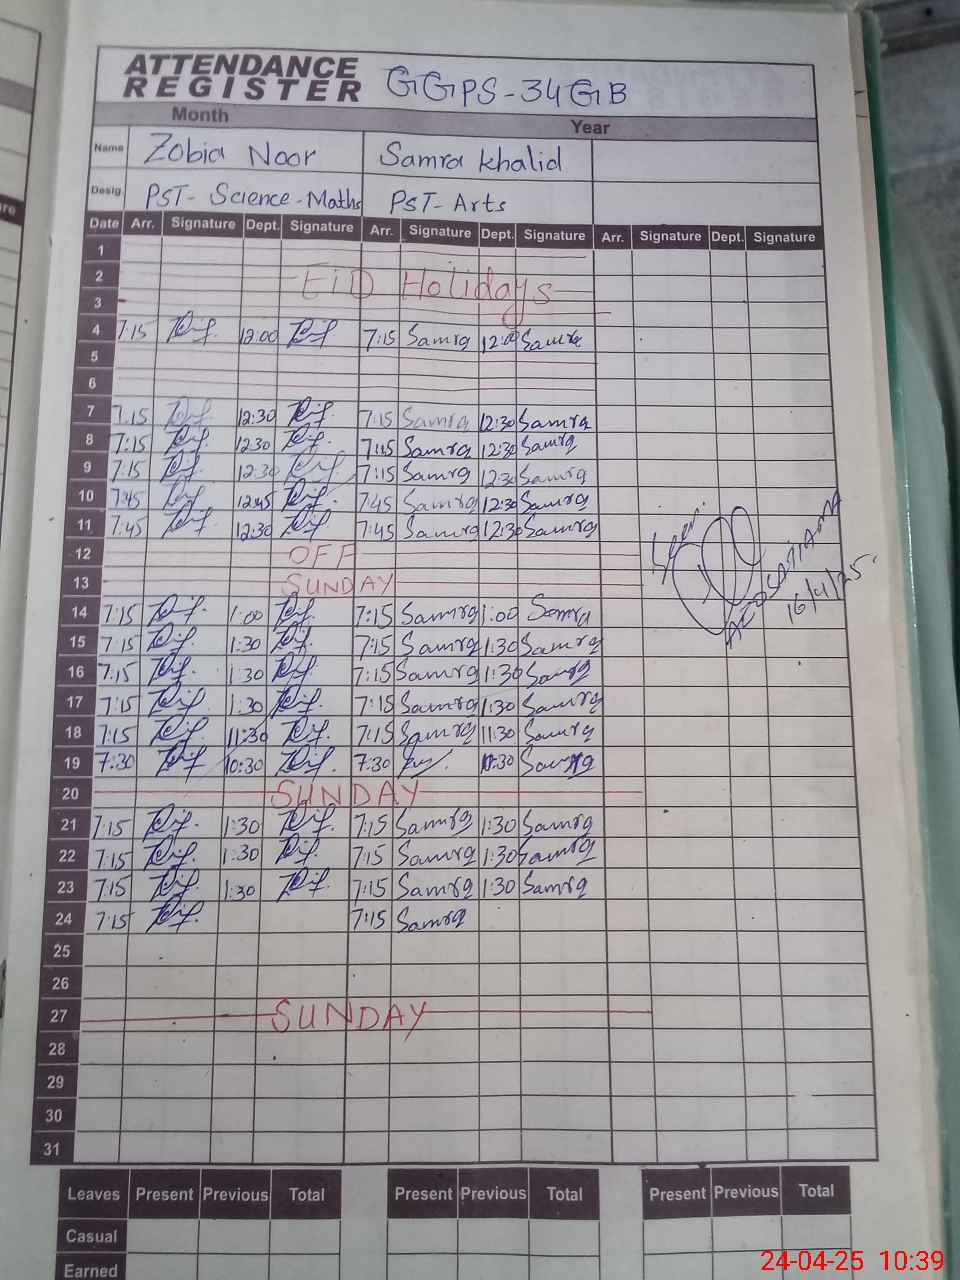 ATTENDANCE
REGISTER GGPS-34GB
Month Year
Name Zobia Noor Samra Khalid
Desig. PST- Science-Maths PST-Arts
Date Arr. Signature Dept. Signature Arr. Signature Dept. Signature Arr. Signature Dept. Signature
1
2 EiD Holidays
3
4 7:15 12:00 7:15 Samra 12:00 Samra
5
6
7 7:15 12:30 7:15 Samra 12:30 Samra
8 7:15 12:30 7:15 Samra 12:30 Samra
9 7:15 12:30 7:15 Samra 12:30 Samra
10 7:45 12:45 7:45 Samra 12:30 Samra
11 7:45 12:30 7:45 Samra 12:30 Samra
12 OFF
13 SUNDAY
Seen
16/4/25
14 7:15 1:00 7:15 Samra 1:00 Samra
15 7:15 1:30 7:15 Samra 1:30 Samra
16 7:15 1:30 7:15 Samra 1:30 Samra
17 7:15 1:30 7:15 Samra 1:30 Samra
18 7:15 11:30 7:15 Samra 11:30 Samra
19 7:30 10:30 7:30 10:30 Samra
20 SUNDAY
21 7:15 1:30 7:15 Samra 1:30 Samra
22 7:15 1:30 7:15 Samra 1:30 Samra
23 7:15 1:30 7:15 Samra 1:30 Samra
24 7:15 7:15 Samra
25
26
27 SUNDAY
28
29
30
31
Leaves Present Previous Total Present Previous Total Present Previous Total
Casual
Earned
24-04-25 10:39